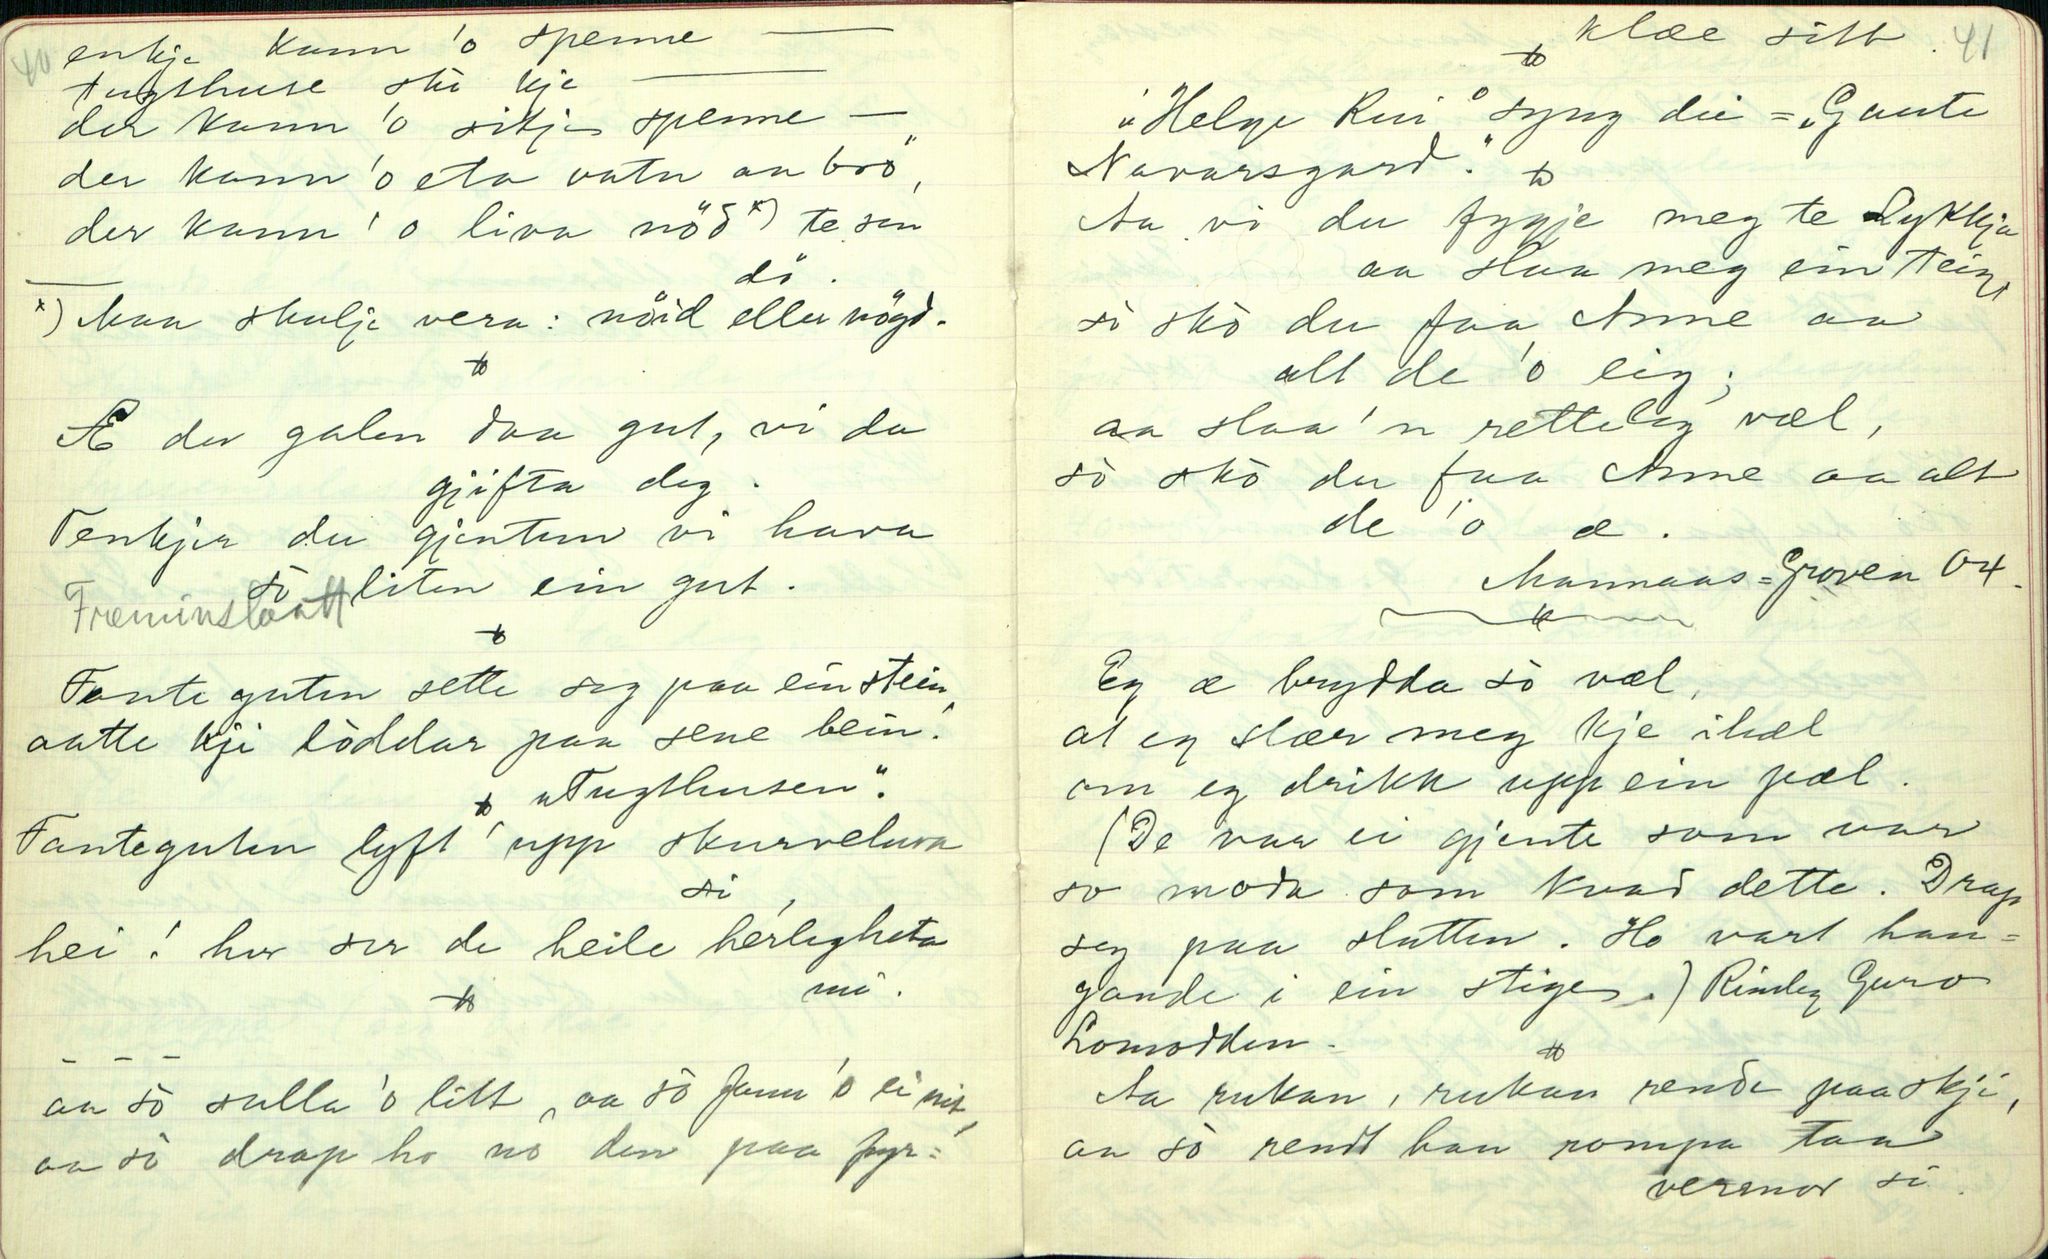 40
enkje kann 'o spenne —
tugthuse skò kje —
der kann 'o sitje spenne —
der kann 'o eta vatn aa brö",
der kann 'o liva nöd x) te sen
dö.
x) Maa skulje vera: nöid eller nögd.
Æ der galen daa gut, vi du
gjifta deg.
Tenkjer du gjentun vi hava
sò liten ein gut.
Fræminslaatt
Fanteguten sette seg paa ein stein,
aatte kji löddar paa sene bein.
"Tugthusen".
Fanteguten lyft' upp skurveluva
si,
hei! her ser de heile herligheta
mi.
– – –
aa sò sulla 'o litt, aa sò fann 'o ei nit,
aa sò drap ho nò den paa fyr=
41
klæe sitt.
"Helge Rui" syng dei = "Gaute
Navarsgard".
Aa vi du fygje meg te Lykkja
aa slaa meg ein teig,
sò skò du faa Anne aa
alt de 'o eig;
aa slaa 'n retteleg væl,
sò skò du faa Anne aa alt
de 'o æ.
Mannaas=Groven 04.
Eg æ brydda sò væl,
at eg slær meg kje ihæl
om eg drikk upp ein pæl.
(De var ei gjente som var
so moda som kvad dette. Drap
seg paa slutten. Ho vart han=
gande i ein stige.) Rindeg Guro
Lomodden.
Aa rukan, rukan rende paa skji,
aa sò rendt han rompa taa
vermor si.